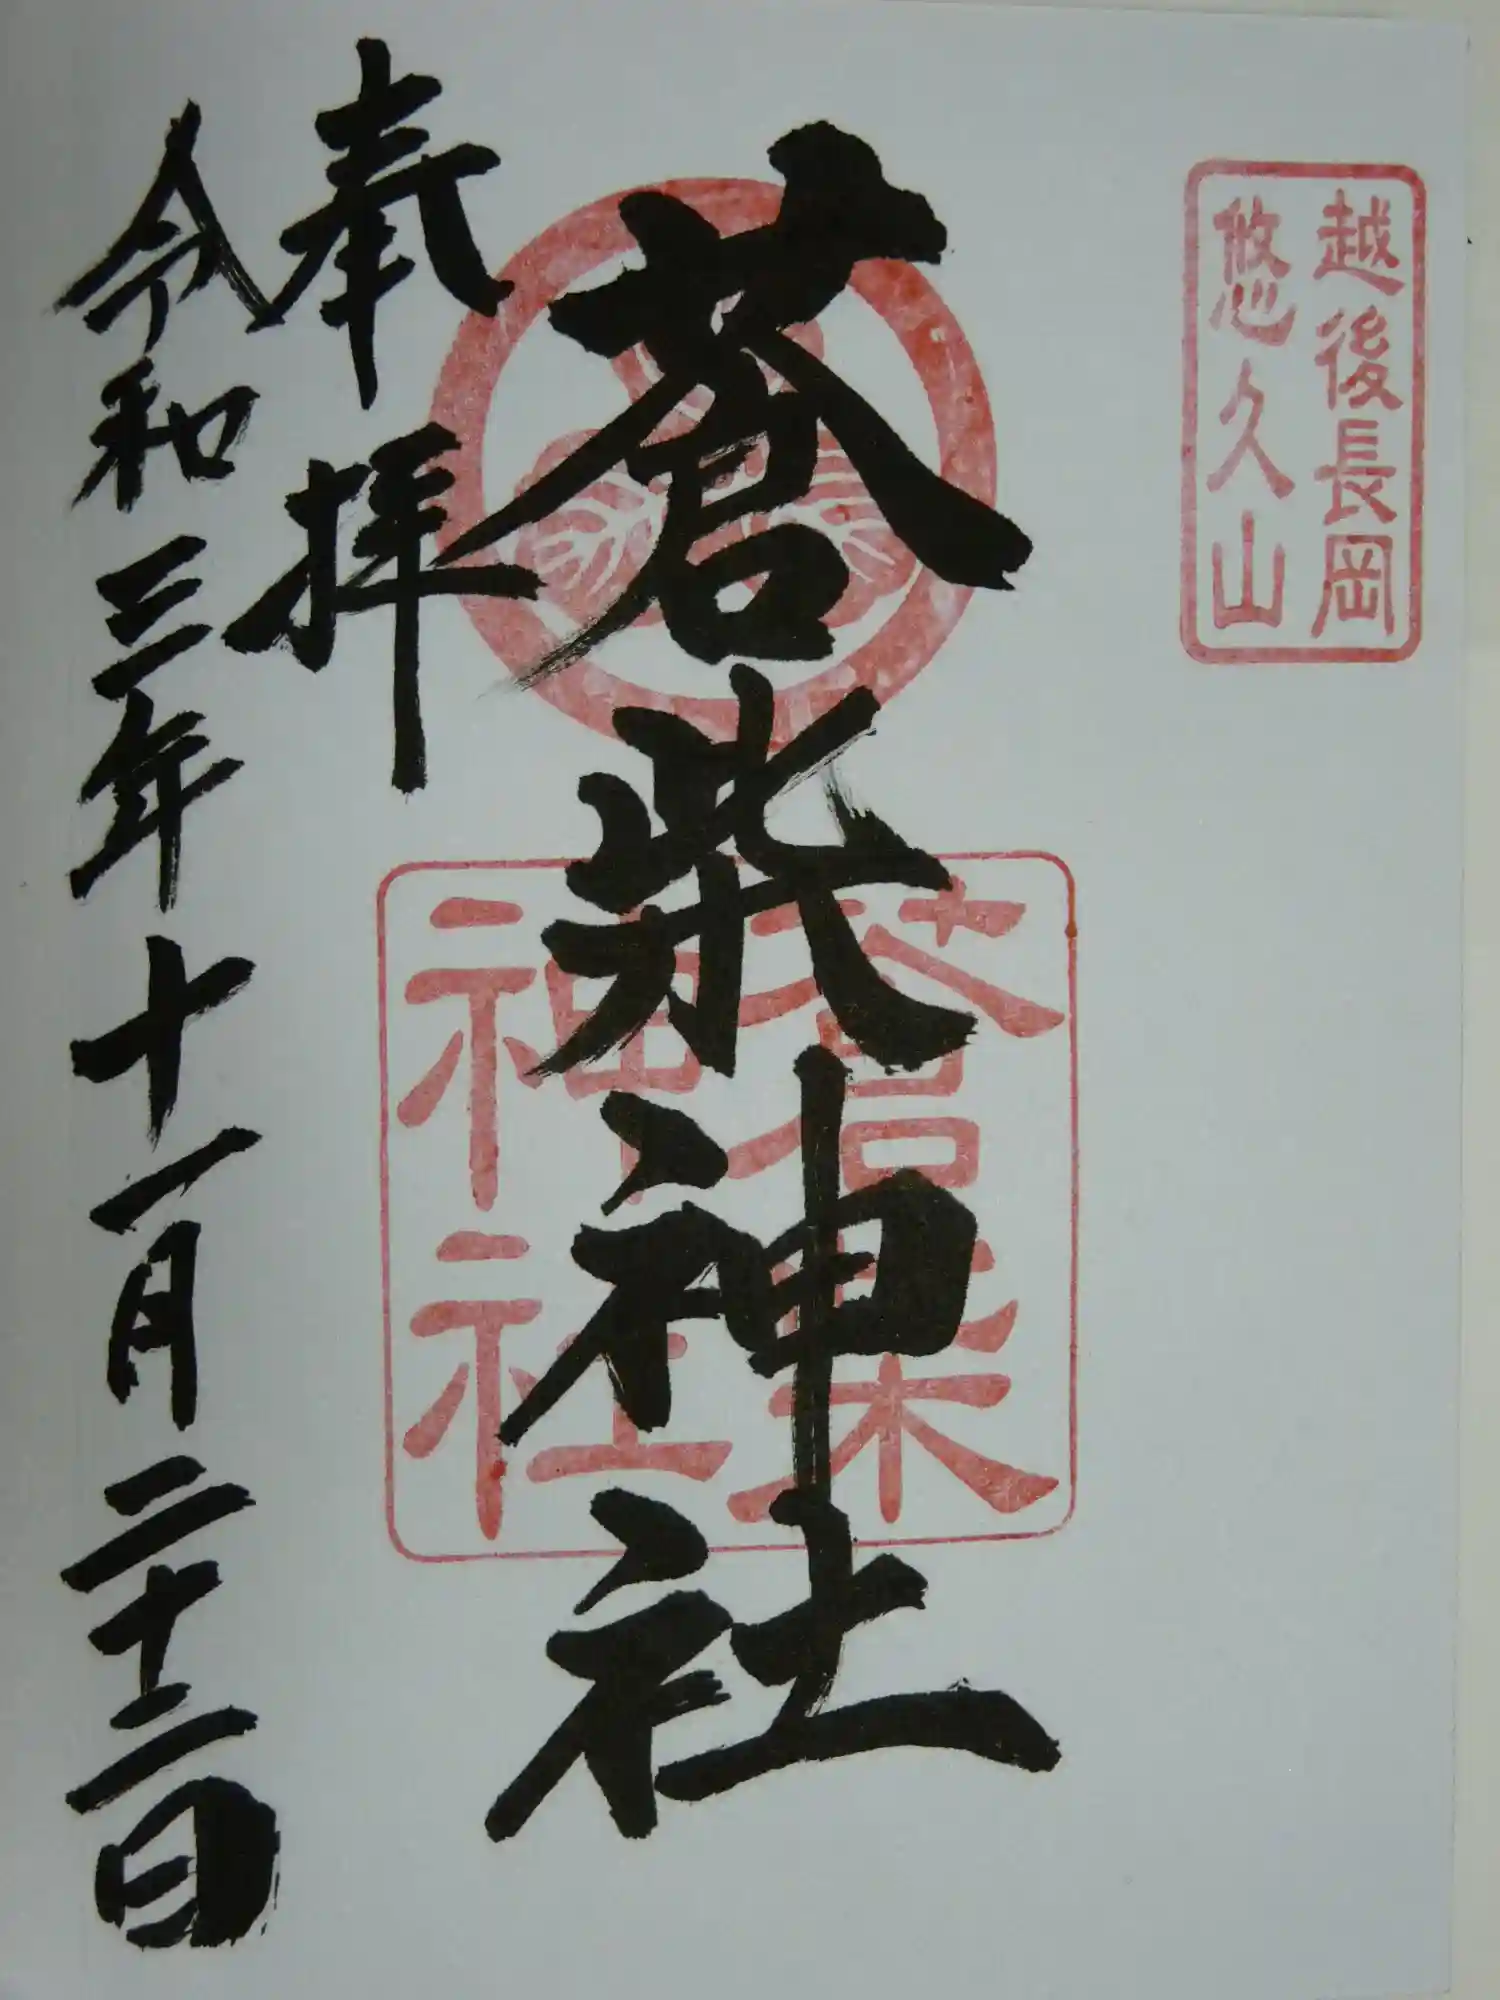 越後長岡
悠久山
蒼柴神社
蒼柴
神社
奉拝
令和三年十一月二十二日